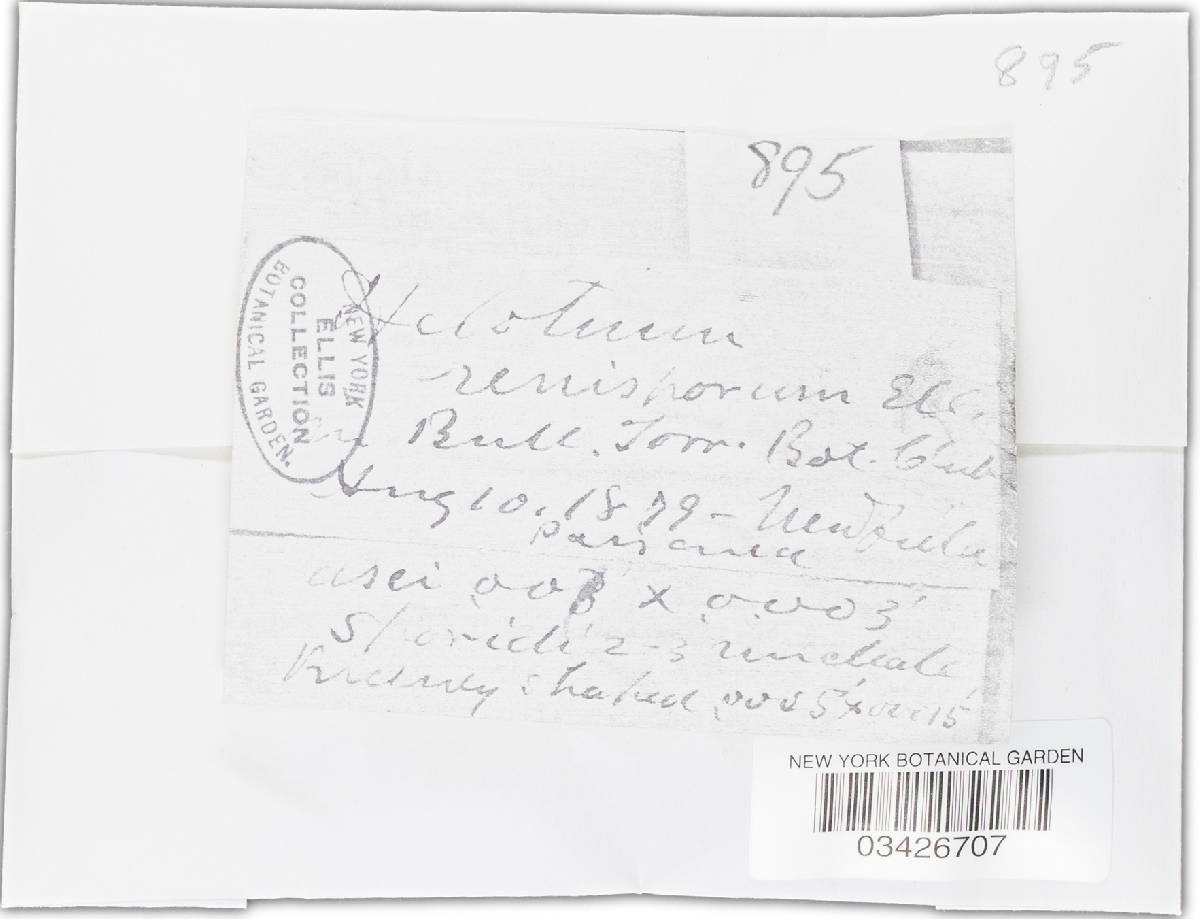 895
895
NEW YORK
ELLIS
COLLECTION
BOTANICAL GARDEN.
Helotium
renisporum Ell.
in Bull. Torr. Bot. Club
Aug 10. 1879 - Newfield
asci .003' x .0003'
Sporidia 2-3 nucleate
Kidney shaped .0005' x .00015'
NEW YORK BOTANICAL GARDEN
03426707